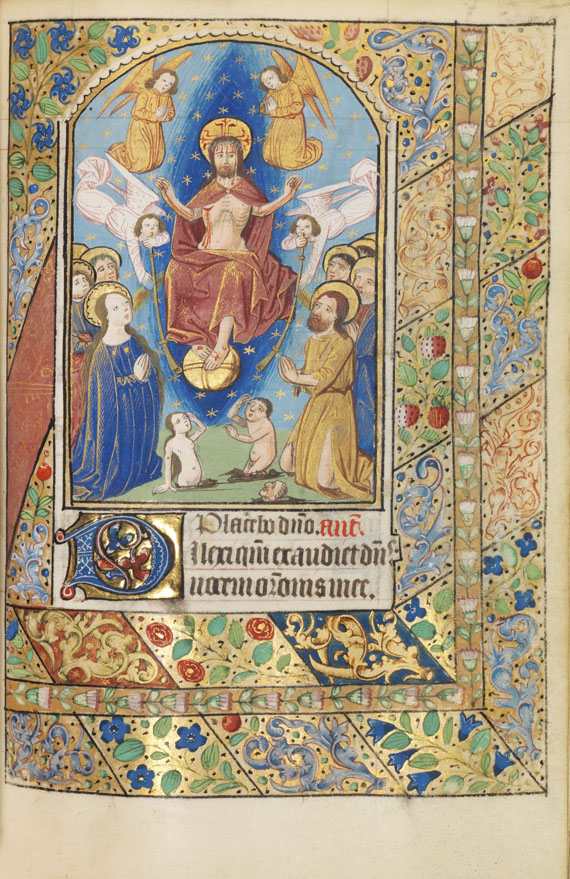 Placebo dño. añt.
Dilexi qm̃ exaudiet dñs
uocem orõnis mee.